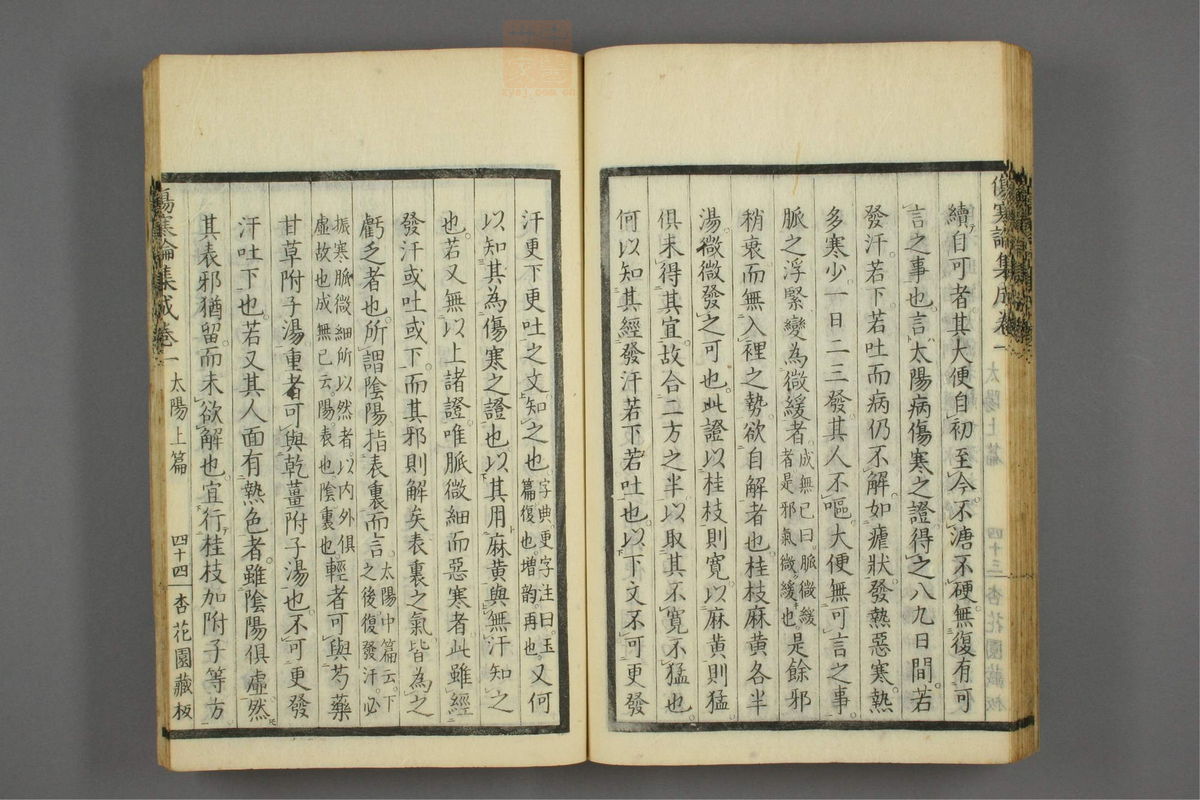 續自可者其大便自初至今不溏不硬無復有可
言之事也言太陽病傷寒之證得之八九日間若
發汗若下若吐而病仍不解如瘧狀發熱惡寒熱
多寒少一日二三發其人不嘔大便無可言之事
脈之浮緊變為微緩者成無已曰脈微緩者是邪氣微緩也是餘邪
稍衰而無入裡之勢欲自解者也桂枝麻黃各半
湯微微發之可也此證以桂枝則寬以麻黃則猛
俱未得其宜故合二方之半以取其不寬不猛也
何以知其經發汗若下若吐也以下文不可更發
汗更下更吐之文知之也字典更字注曰玉篇復也增韵再也又何
以知其為傷寒之證也以其用麻黃與無汗知之
也若又無以上諸證唯脈微細而惡寒者此雖經
發汗或吐或下而其邪則解矣表裏之氣皆為之
虧乏者也所謂陰陽指表裏而言太陽中篇云下之後復發汗必
振寒脈微細所以然者以內外俱虛故也成無已云陽表也陰裏也輕者可與芍藥
甘草附子湯重者可與乾薑附子湯也不可更發
汗吐下也若又其人面有熱色者雖陰陽俱虛然
其表邪猶留而未欲解也宜行桂枝加附子等方
傷寒論集成卷一 太陽上篇 四十四 杏花園藏板
傷寒論集成卷一 太陽上篇 四十三 杏花園藏板